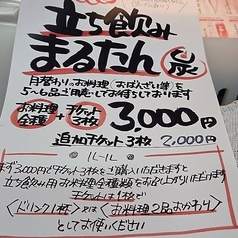 立ち飲み
まるたん
炭
月替わりのお料理(おばんざい等)を
5〜6品ご用意してお待ちしております
お料理全種 + チケット3枚 3,000円
追加チケット3枚 2,000円
ルール
まず3,000円でチケット3枚をご購入いただきますと
立ち飲み用お料理全種類をお召し上がりいただけます
チケットは1枚で
〈ドリンク1杯〉又は〈お料理2品おかわり〉
としてお使いください